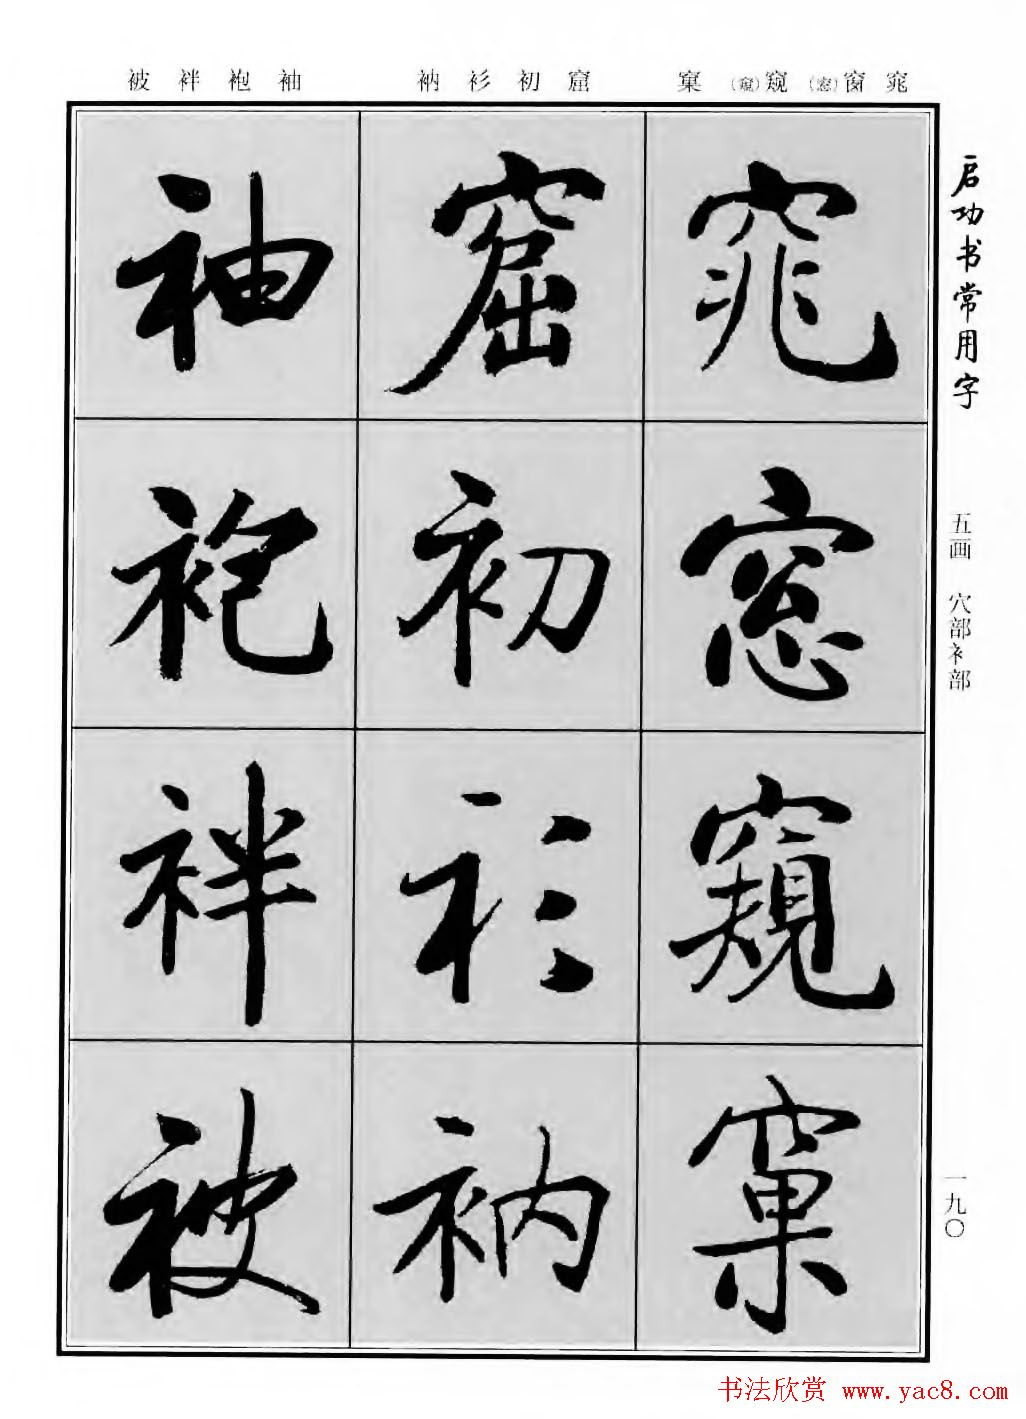 窕 窗(窓) 窥(窺) 窠
窟 初 衫 衲
袖 袍 袢 被
窕
窓
窺
窠
窟
初
衫
衲
袖
袍
袢
被
启功书常用字
五画 穴部衤部
一九〇
书法欣赏 www.yac8.com